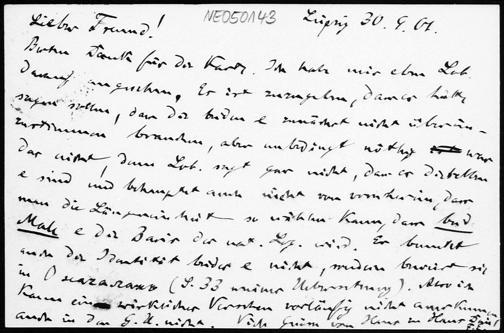 NE050143
Leipzig 30. 9. 01.
Lieber Freund!
Besten Dank für die Karte. Ich habe mir eben Lob.
darauf angesehen. Es ist zuzugeben, dass er hätte
sagen sollen, dass die beiden e zunächst nicht überein-
zustimmen brauchen, aber unbedingt nöthig war
das nicht, denn Lob. sagt gar nicht, dass es dieselben
e sind und behauptet auch nicht von vornherein, dass
man die Längeneinheit so wählen kann, dass beide
Male e die Basis der nat. Log. wird. Er benutzt
auch die Identität beider e nicht, sondern beweist sie
in (S. 33 meiner Uebersetzung). Also ich
kann ein wirkliches Versehen vorläufig nicht anerkennen,
auch in den G. U. nicht. Viele Grüsse von Haus zu Haus